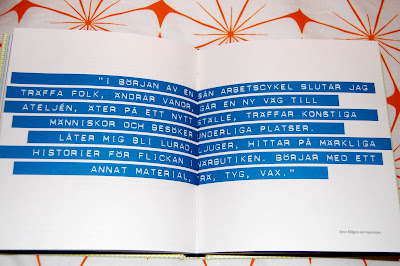 "I BÖRJAN AV EN SÅN ARBETSCYKEL SLUTAR JAG
TRÄFFA FOLK, ÄNDRAR VANOR, GÅR EN NY VÄG TILL
ATELJÉN, ÄTER PÅ ETT NYTT STÄLLE, TRÄFFAR KONSTIGA
MÄNNISKOR OCH BESÖKER UNDERLIGA PLATSER.
LÅTER MIG BLI LURAD, LJUGER, HITTAR PÅ MÄRKLIGA
HISTORIER FÖR FLICKAN I NÄRBUTIKEN. BÖRJAR MED ETT
ANNAT MATERIAL, TRÄ, TYG, VAX."